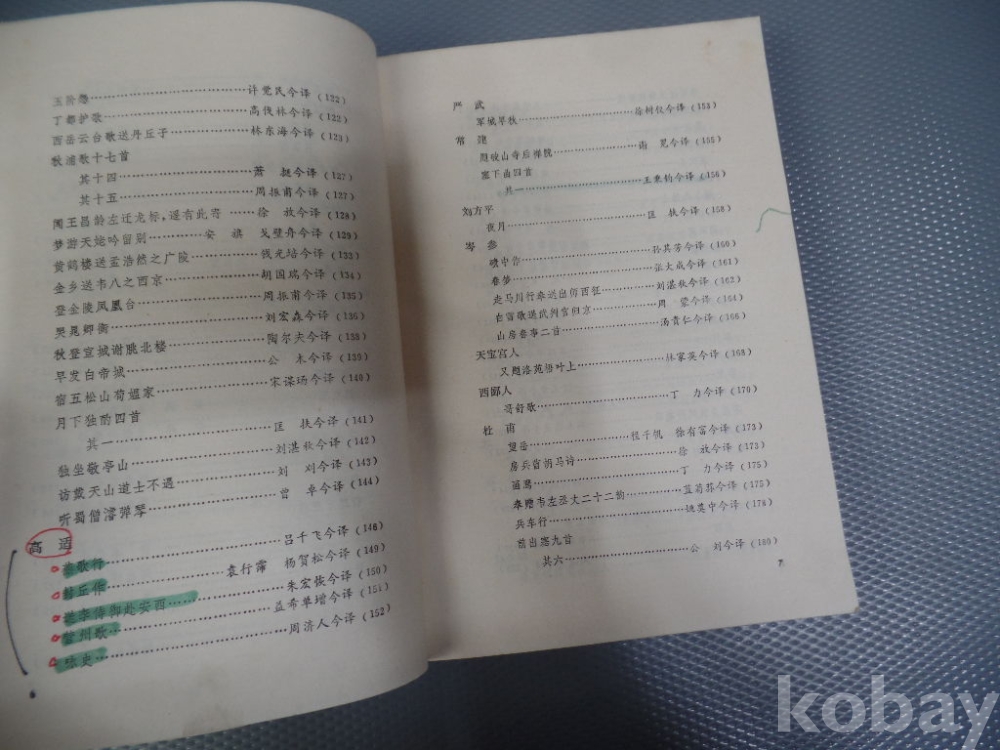 玉阶怨……………………许觉民今译(132)
丁都护歌…………………高俊林今译(122)
西岳云台歌送丹丘子……林东海今译(123)
秋浦歌十七首
其十四……………………萧 挺今译(127)
其十五……………………周振甫今译(132)
闻王昌龄左迁龙标,遥有此寄……徐 放今译(128)
梦游天姥吟留别…………安 旗 戈壁舟今译(129)
黄鹤楼送孟浩然之广陵……钱光培今译(133)
金乡送韦八之西京………胡国瑞今译(134)
登金陵凤凰台……………周振甫今译(135)
哭晁卿衡…………………刘宏森今译(136)
秋登宣城谢朓北楼………陶尔夫今译(138)
早发白帝城………………公 木今译(139)
宿五松山荀媪家…………宋谋玚今译(140)
月下独酌四首
其一………………………匡 扶今译(141)
独坐敬亭山………………刘湛秋今译(142)
访戴天山道士不遇………刘 今译(143)
听蜀僧濬弹琴……………曾 卓今译(144)
高 适
燕歌行……………………吕千飞今译(146)
封丘作……………………袁行霈 杨贺松今译(149)
送李侍御赴安西…………朱宏恢今译(150)
营州歌……………………益希单增今译(151)
咏史………………………周济人今译(152)
严 武
军城早秋…………………徐树仪今译(153)
常 建
题破山寺后禅院…………雨 今译(155)
塞下曲四首
其一………………………王秉钧今译(156)
刘方平
夜月………………………匡 扶今译(158)
岑 参
碛中作……………………孙其芳今译(160)
春梦………………………张大成今译(161)
走马川行奉送出师西征……刘湛秋今译(162)
白雪歌送武判官归京……周 今译(164)
山房春事二首……………汤贵仁今译(166)
天宝宫人
又题洛苑梧叶上…………林家英今译(168)
西鄙人
哥舒歌……………………丁 力今译(170)
杜 甫
望岳………………………程千帆 徐有富今译(173)
房兵曹胡马诗……………徐 放今译(173)
画鹰………………………丁 力今译(175)
奉赠韦左丞丈二十二韵……蓝菊荪今译(175)
兵车行……………………姚奠中今译(178)
前出塞九首
其六………………………公 刘今译(180)
7
kobay